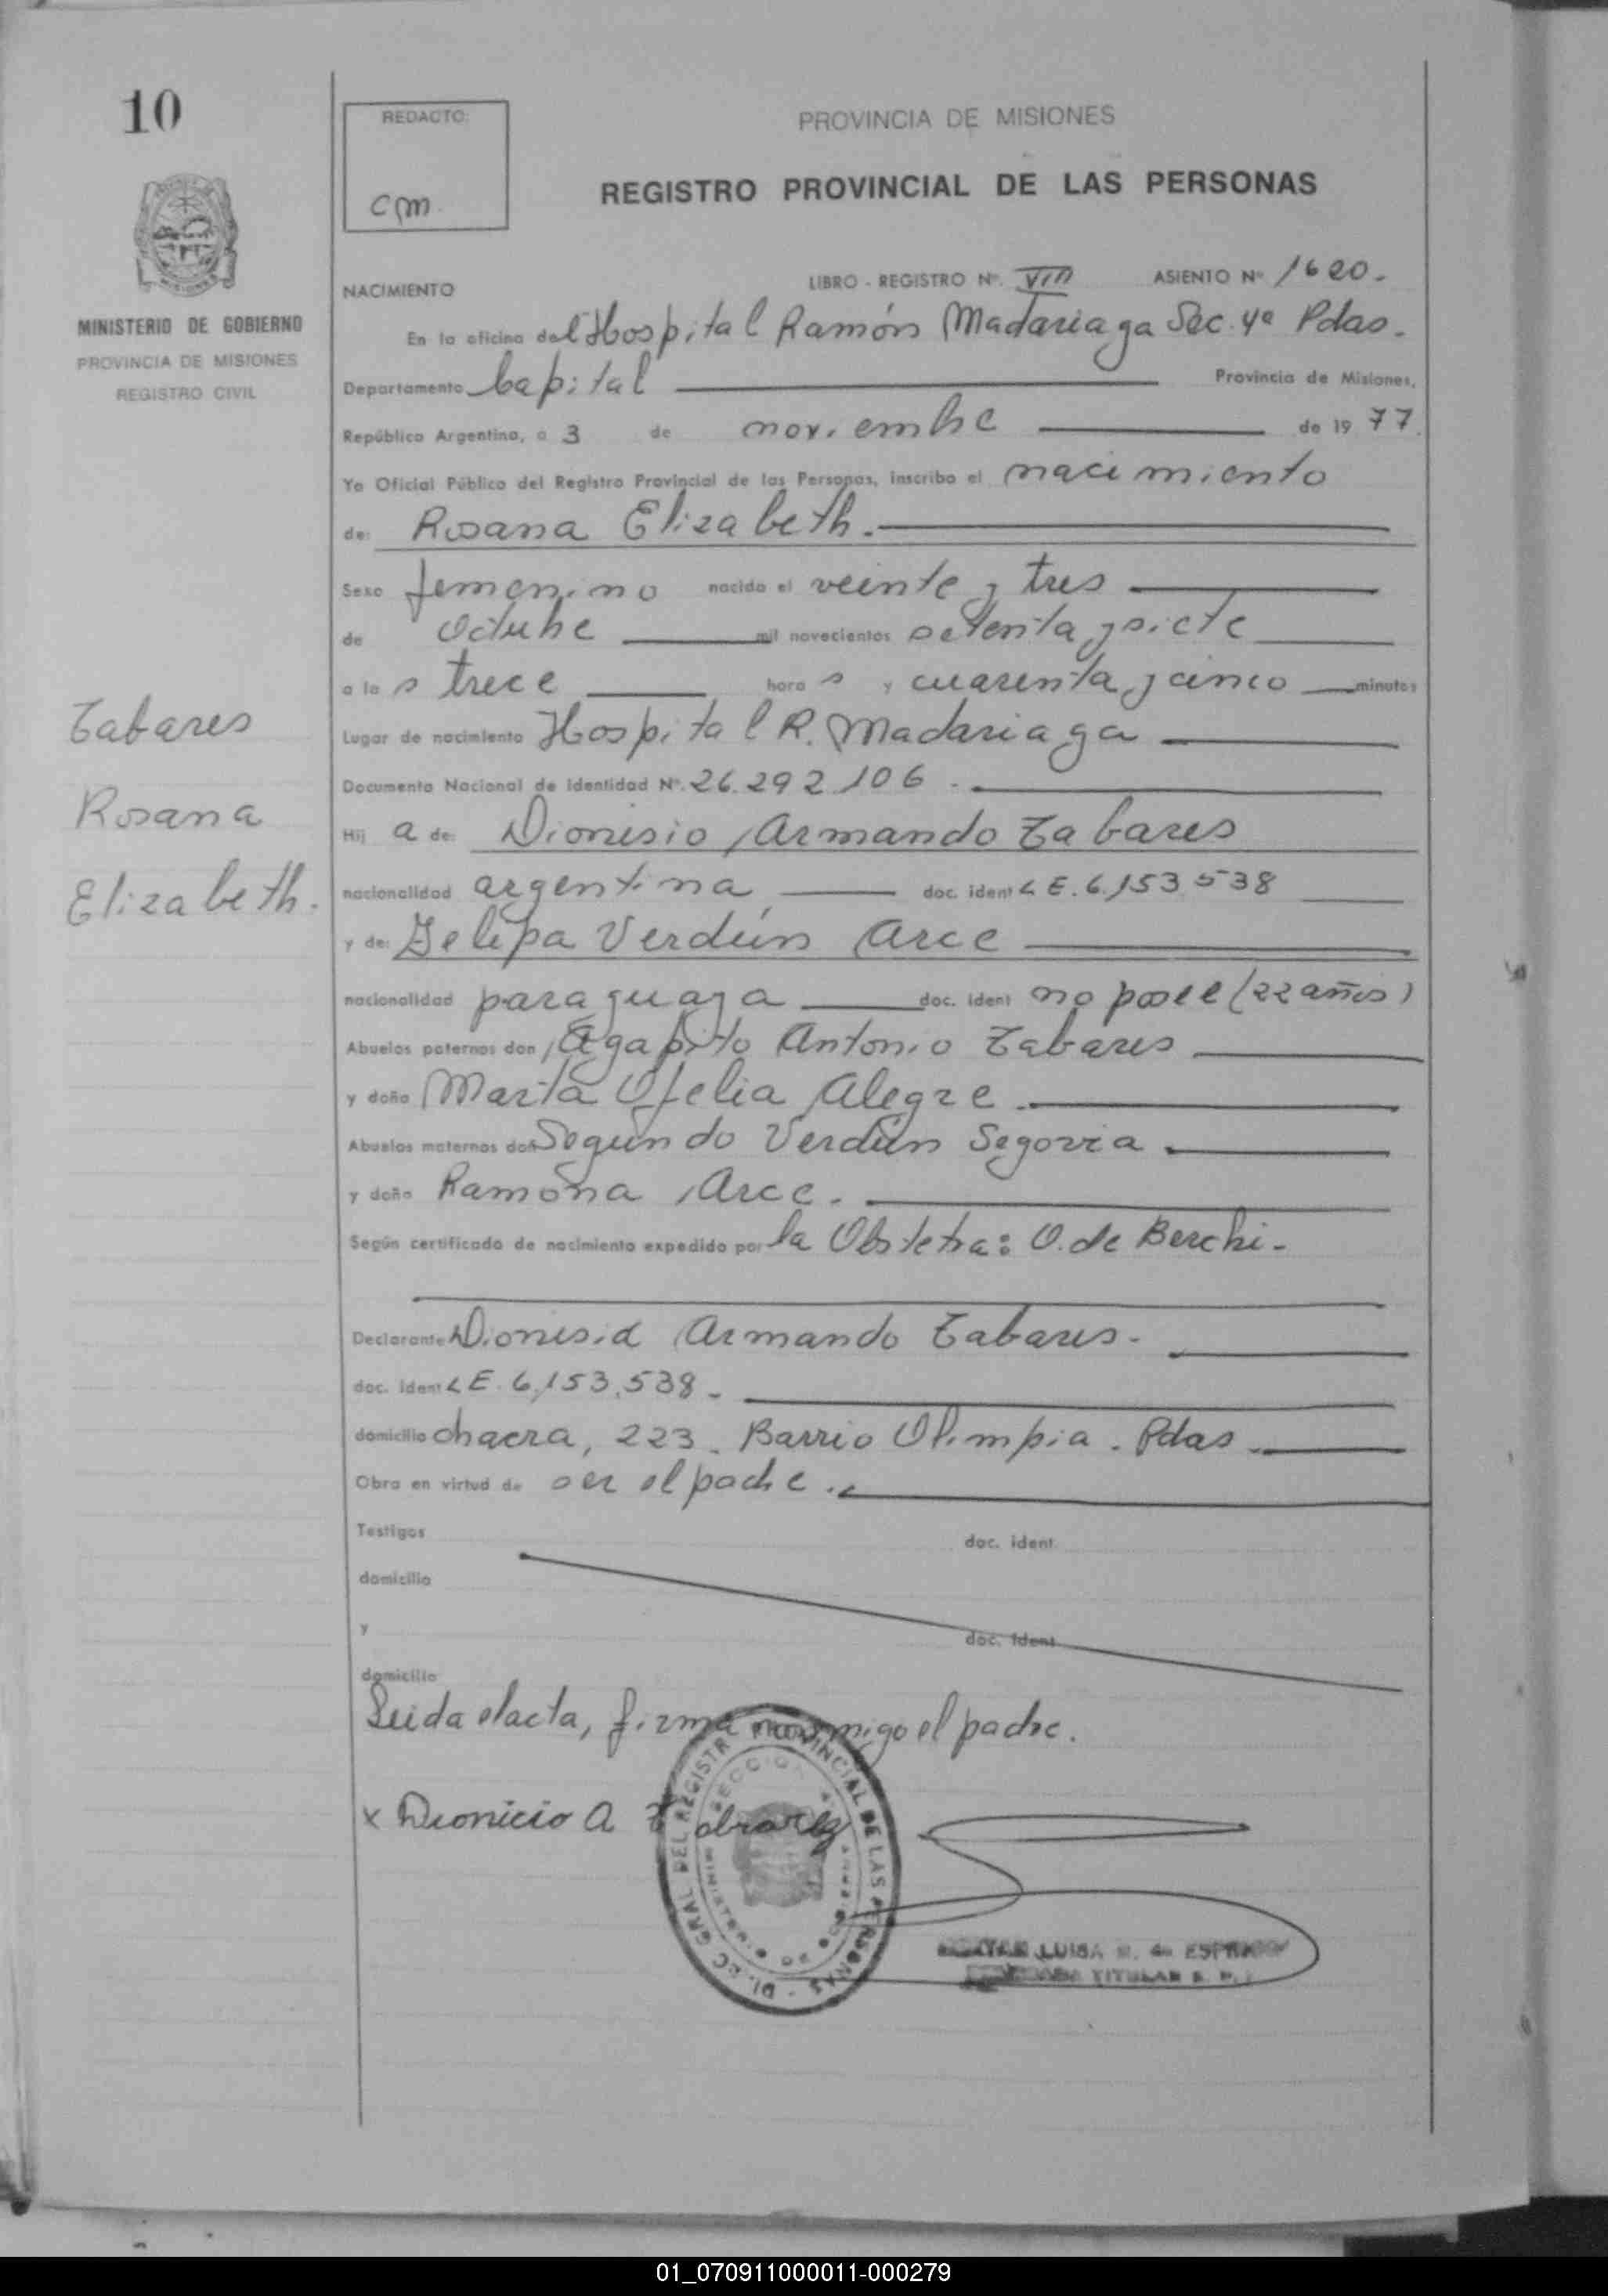 10
REDACTO:
cm.
PROVINCIA DE MISIONES
REGISTRO PROVINCIAL DE LAS PERSONAS
MINISTERIO DE GOBIERNO
PROVINCIA DE MISIONES
REGISTRO CIVIL
NACIMIENTO
LIBRO - REGISTRO Nº. VIII ASIENTO Nº 1620.
En la oficina del Hospital Ramón Madariaga Sec. 4ª Pdas.
Departamento Capital Provincia de Misiones,
República Argentina, a 3 de noviembre de 1977.
Yo Oficial Público del Registro Provincial de las Personas, inscribo el nacimiento
de: Rosana Elizabeth.
Sexo femenino nacido el veinte y tres
de Octubre mil novecientos setenta y siete
a las trece horas y cuarenta y cinco minutos
Lugar de nacimiento Hospital R. Madariaga
Documento Nacional de Identidad Nº. 26.292.106.
Hija de: Dionisio Armando Tabares
nacionalidad argentina, doc. ident LE. 6.153.538
y de: Felipa Verdún Arce
nacionalidad paraguaya doc. ident no posee (22 años)
Abuelos paternos don Agapito Antonio Tabares
y doña Marta Ofelia Alegre.
Abuelos maternos don Segundo Verdún Segovia.
y doña Ramona Arce.
Según certificado de nacimiento expedido por la Obstetra: O. de Berchi-
Declarante Dionisio Armando Tabares.
doc. ident LE. 6.153.538.
domicilio chacra, 223. Barrio Olimpia. Pdas.
Obra en virtud de ser el padre.
Testigos doc. ident.
domicilio
y doc. ident.
domicilio
Leida el acta, firma conmigo el padre.
x Dionicio A Tabarez
DIREC GRAL DEL REGISTRO PROVINCIAL DE LAS PERSONAS
LUISA
TITULAR
Tabares
Rosana
Elizabeth.
01_070911000011-000279